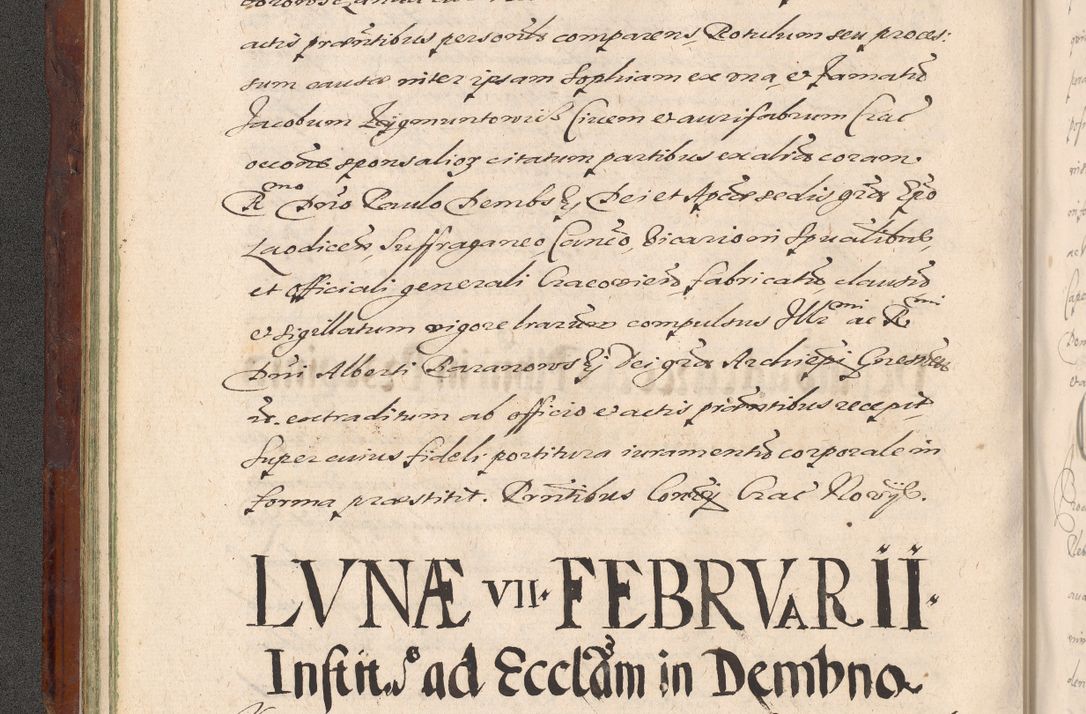 actis præntibus personlr comparens, Rotulum seu proces:
sum causæ inter ipsam Sophiam ex una, et Famatu
Jacobum Zygmuntowic Civem et aurifabrum Crac
occone sponsalior citatum partibus ex alia coram
R mo Dno Paulo Dembsky Dei et Apcæ sedis gra Epo
Laodicen, Suffraganeo, Canco, Vicario in Spualibus,
et Officiali generali Cracovien, fabricatu clausu
et sigillatum vigore lrarum compulsus Illr mi ac R mi
Dni Alberti Baranowsky Dei gra Archiepi Gnesnen
extraditum ab officio et actis præntibus recepit
Super cuius fideli portitura iuramento corporale in
forma præstitit. Prntibus Crac Nowy.
LVNÆ VII. FEBRVARII.
Instit.º ad Ecclam in Dembno